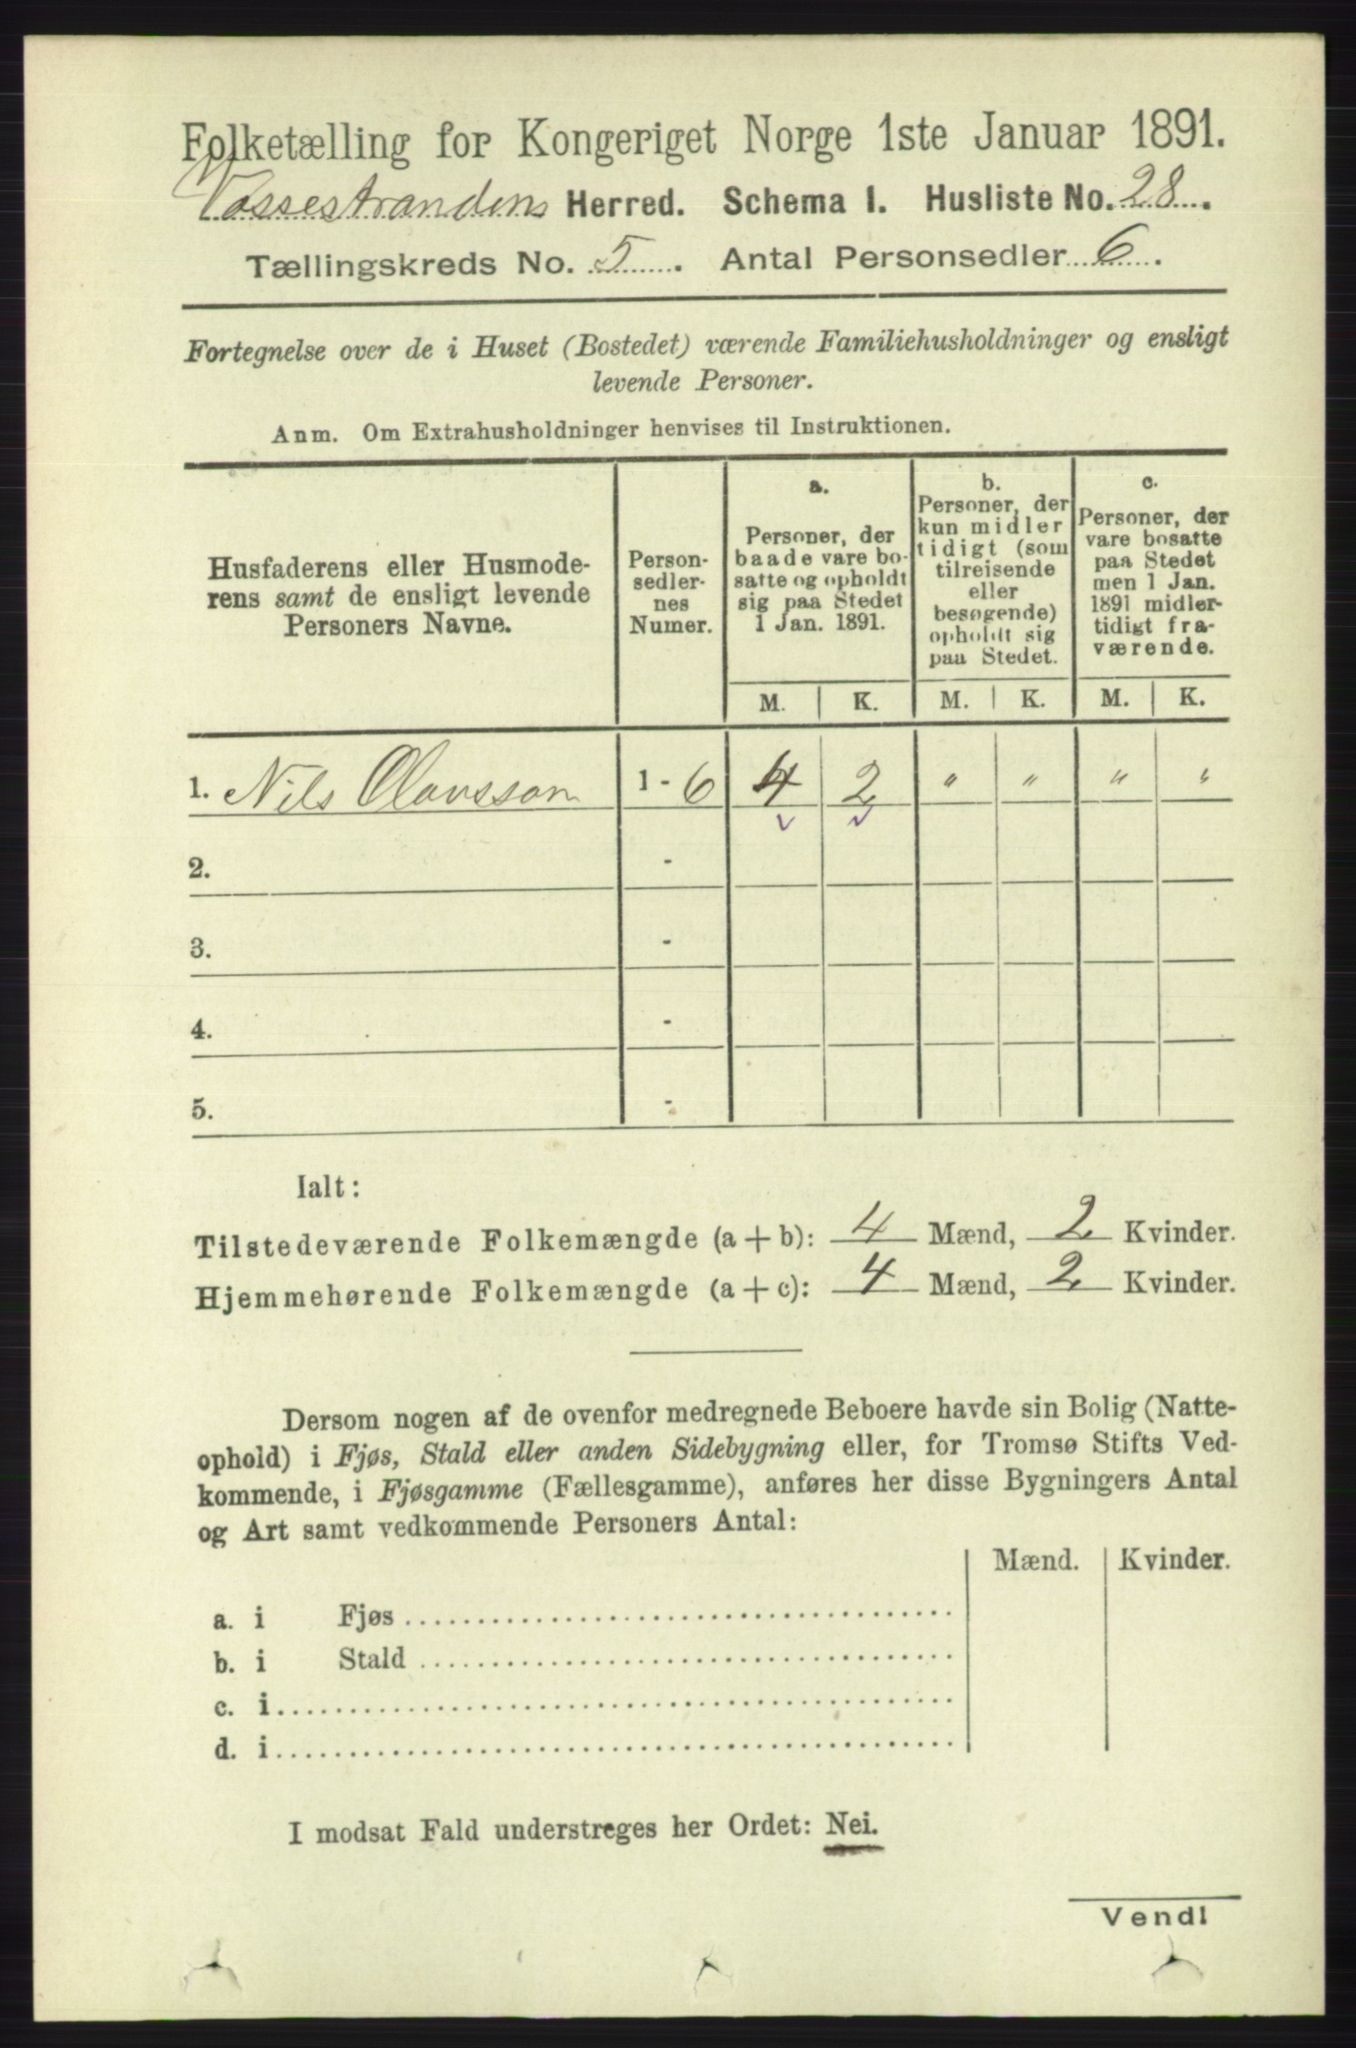 Folketælling for Kongeriget Norge 1ste Januar 1891.
Vossestrandens Herred. Schema I. Husliste No. 28.
Tællingskreds No. 5. Antal Personsedler 6.
Fortegnelse over de i Huset (Bostedet) værende Familiehusholdninger og ensligt
levende Personer.
Anm. Om Extrahusholdninger henvises til Instruktionen.
Husfaderens eller Husmode-
rens samt de ensligt levende
Personers Navne.
Person-
sedler-
nes
Numer.
a.
Personer, der
baade vare bo-
satte og opholdt
sig paa Stedet
1 Jan. 1891.
b.
Personer, der
kun midler
tidigt (som
tilreisende
eller
besøgende)
opholdt sig
paa Stedet.
c.
Personer, der
vare bosatte
paa Stedet
men 1 Jan.
1891 midler-
tidigt fra-
værende.
M. K. M. K. M. K.
1. Nils Olavsson 1 - 6 4 2 " " " "
2. -
3. -
4. -
5. -
Ialt:
Tilstedeværende Folkemængde (a + b): 4 Mænd, 2 Kvinder.
Hjemmehørende Folkemængde (a + c): 4 Mænd, 2 Kvinder.
Dersom nogen af de ovenfor medregnede Beboere havde sin Bolig (Natte-
ophold) i Fjøs, Stald eller anden Sidebygning eller, for Tromsø Stifts Ved-
kommende, i Fjøsgamme (Fællesgamme), anføres her disse Bygningers Antal
og Art samt vedkommende Personers Antal:
Mænd. Kvinder.
a. i Fjøs
b. i Stald
c. i
d. i
I modsat Fald understreges her Ordet: Nei.
Vend!